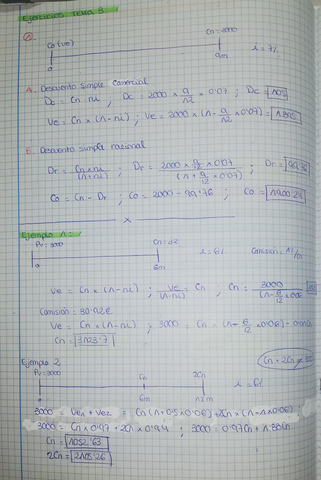 Ejercicios Tema 3
Co (Vo) Cn = 2000
i = 7%
0 9m
A. Descuento simple comercial
Dc = Cn · n · i ; Dc = 2000 × 9/12 × 0'07 ; Dc = 105
Ve = Cn × (1 - ni) ; Ve = 2000 × (1 - 9/12 × 0'07) = 1.895
B. Descuento simple racional
Dr = Cn × ni / (1 + ni) ; Dr = 2000 × 9/12 × 0'07 / (1 + 9/12 × 0'07) ; Dr = 99'76
Co = Cn - Dr ; Co = 2000 - 99'76 ; Co = 1900'24
x
Ejemplo 1:
Pv = 3000 Cn = i?
i = 6% Comisión
0 6m
Ve = Cn × (1 - ni) ; Ve / (1 - ni) = Cn ; Cn = 3000 / (1 - 6/12 × 0'06)
Comisión = 30'92€
Ve = Cn × (1 - ni) ; 3000 = Cn × (1 - 6/12 × 0'06) -
Cn = 3123'7
Ejemplo 2
Cn + 2Cn =
Pv = 3000 Cn 2Cn
i = 6%
0 6m 12m
3000 = Ve1 + Ve2 = Cn (1 + 0'5 × 0'06) + 2Cn × (1 - 1 × 0'06)
3000 = Cn × 0'97 + 2Cn × 0'94 ; 3000 = 0'97Cn + 1'88Cn
Cn = 1052'63
2Cn = 2105'26